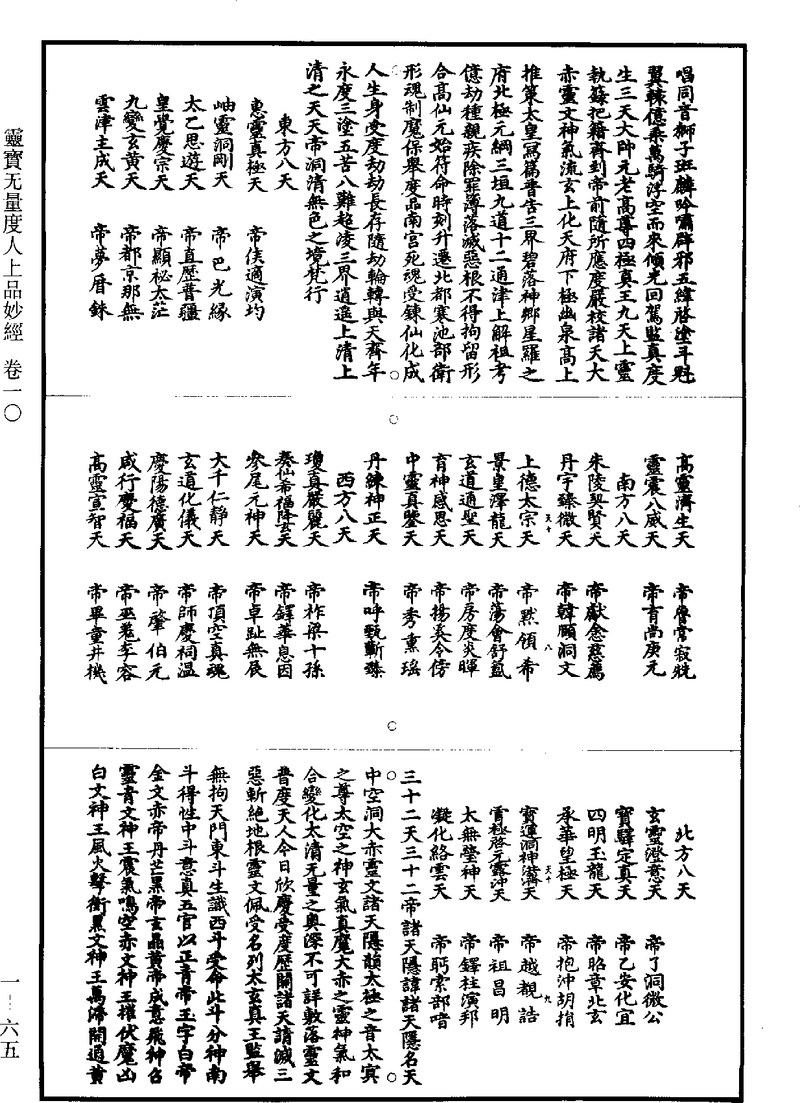 靈寶无量度人上品妙經 卷一〇
唱同音獅子班麟吟嘯辟邪五緯啓塗斗魁
翼轅億乘萬騎浮空而來傾光回駕監真度
生三天大帥元老高尊四極真王九天上靈
執籙把籍齊到帝前隨所應度嚴校諸天大
赤靈文神氣流玄上化天府下極幽泉高上
推策太皇寫篇普告三界碧落神鄉星羅之
府北極元綱三垣九道十二通津上解祖考
億劫種親疾除罪簿落滅惡根不得拘留形
合高仙元始符命時刻升遷北都寒池部衛
形魂制魔保舉度品南宮死魂受鍊仙化成
人生身受度劫劫長存隨劫輪轉與天齊年
永度三塗五苦八難超凌三界逍遙上清上
清之天天帝洞清無色之境梵行
東方八天
惠靈真極天 帝俟適演圴
岫靈洞剛天 帝巴光緣
太乙思遊天 帝直歷普疆
皇覺慶宗天 帝顯祕太茫
九變玄黃天 帝都京那無
雲津主成天 帝夢厝銖
高靈濟生天 帝魯常寂兟
靈震八威天 帝育尚庚元
南方八天
朱陵契賢天 帝獻念慈薦
丹宇臻微天 帝韓顯洞文
上德太宗天 帝黙領希
景皇澤龍天 帝蕩會舒氳
玄道通聖天 帝房度炎暉
育神感思天 帝揚奚令傍
中靈真鑒天 帝秀熏瑶
丹練神正天 帝呼甄斬臻
西方八天
瓊真嚴麗天 帝柞梁十孫
奏仙希福隆玄天 帝鐸華息因
參尾元神天 帝卓趾無辰
大千仁靜天 帝頂空真魂
玄道化儀天 帝師慶祠溫
慶陽德廣天 帝肇伯元
咸行慶福天 帝巫菴李容
高靈宣智天 帝畢童井機
北方八天
玄靈澄意天 帝了洞微公
寶驛定真天 帝乙安化宜
四明玉龍天 帝昭章北玄
承華望極天 帝抱沖胡捐
寶運洞神溝濱天 帝越覩誥
霄極啓元露沖天 帝祖昌明
太無瑩神天 帝鐸柱演邦
凝化絡雲天 帝眄索部喑
三十二天三十二帝諸天隱諱諸天隱名天
中空洞大赤靈文諸天隱韻太極之音太寘
之尊太空之神玄氣真魔大赤之靈神氣和
合變化太清無量之奧深不可詳敷落靈文
普度天人今日欣慶受度歷關諸天請滅三
惡斬絕地根靈文佩受名列太玄真王監舉
無拘天門東斗生識西斗受命北斗分神南
斗得性中斗意真五官以正青帝玉字白帝
金文赤帝丹芒黑帝玄晶黃帝成意飛神召
靈青文神王震氣鳴空赤文神王摧伏魔凶
白文神王風火擊衝黑文神王萬㳍開通黃
一—六五